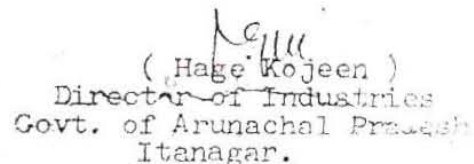 ( Hage Kojeen )
Director of Industries
Govt. of Arunachal Pradesh
Itanagar.